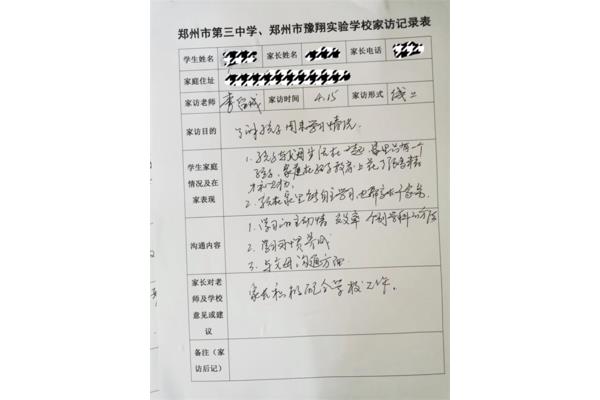 郑州市第三中学、郑州市豫翔实验学校家访记录表
学生姓名 家长姓名 家长电话
家庭住址
家访老师 家访时间 4.15 家访形式 线上
家访目的 了解孩子周末学习情况
学生家庭
情况及在
家表现
1. 孩子与父母生活在一起,家里只有一个
孩子,家庭在孩子教育上花了很多精
2. 孩子在家里能自主学习,也
沟通内容
1. 学习的主动性 效率 个别学科的方法
2. 学习习惯养成
3. 与父母沟通方面
家长对老
师及学校
意见或建
议
家长积极配合学校工作。
备注(家
访后记)